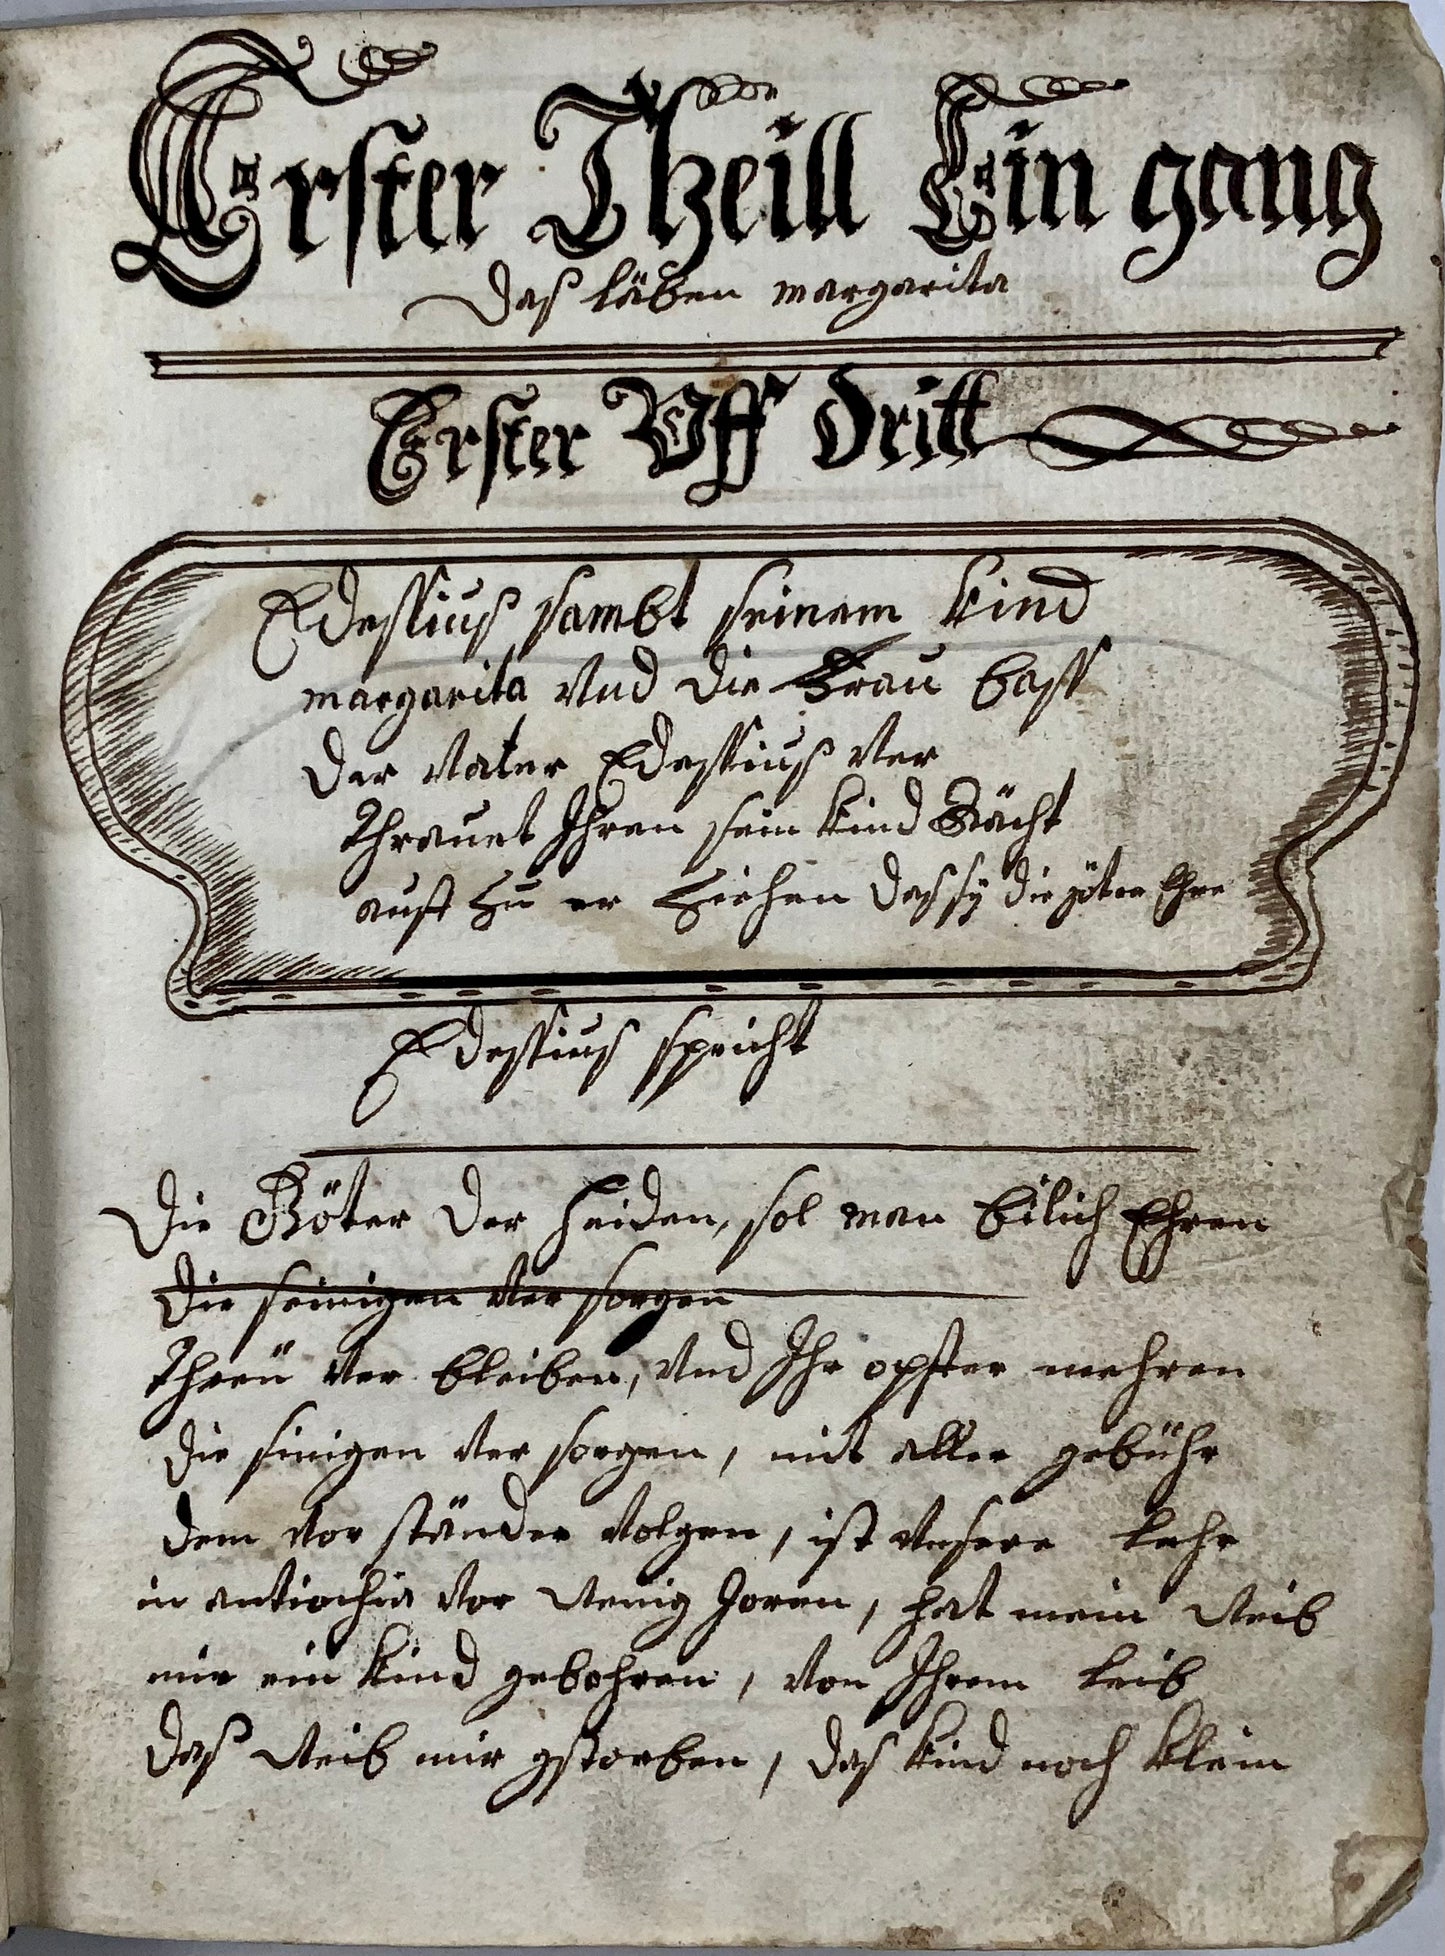 Erster Theill Ein gang
Das läben margarita
Erster Vff dritt
Edessius sambt seinem kind
margarita Vnd die Frau bass
Der Vater Edessius Ver
Thrauet Ihren sein kind Rächt
auff Zu er Ziehen das sÿ die göter Ehre
Edessius spricht
Die Göter der heiden, sol man bilich Ehren
die seinigen Ver sorgen
Threü Ver bleiben, Vnd Ihr opffer mehren
die sinigen Ver sorgen, mit aller gebühr
dem Vor ständer Volgen, ist Vnsere Lehr
in antiochia Vor Wenig Joren, hat mein Weib
mir ein kind gebohren, Von Ihrem Leib
das Weib mir gstorben, das kind noch klein